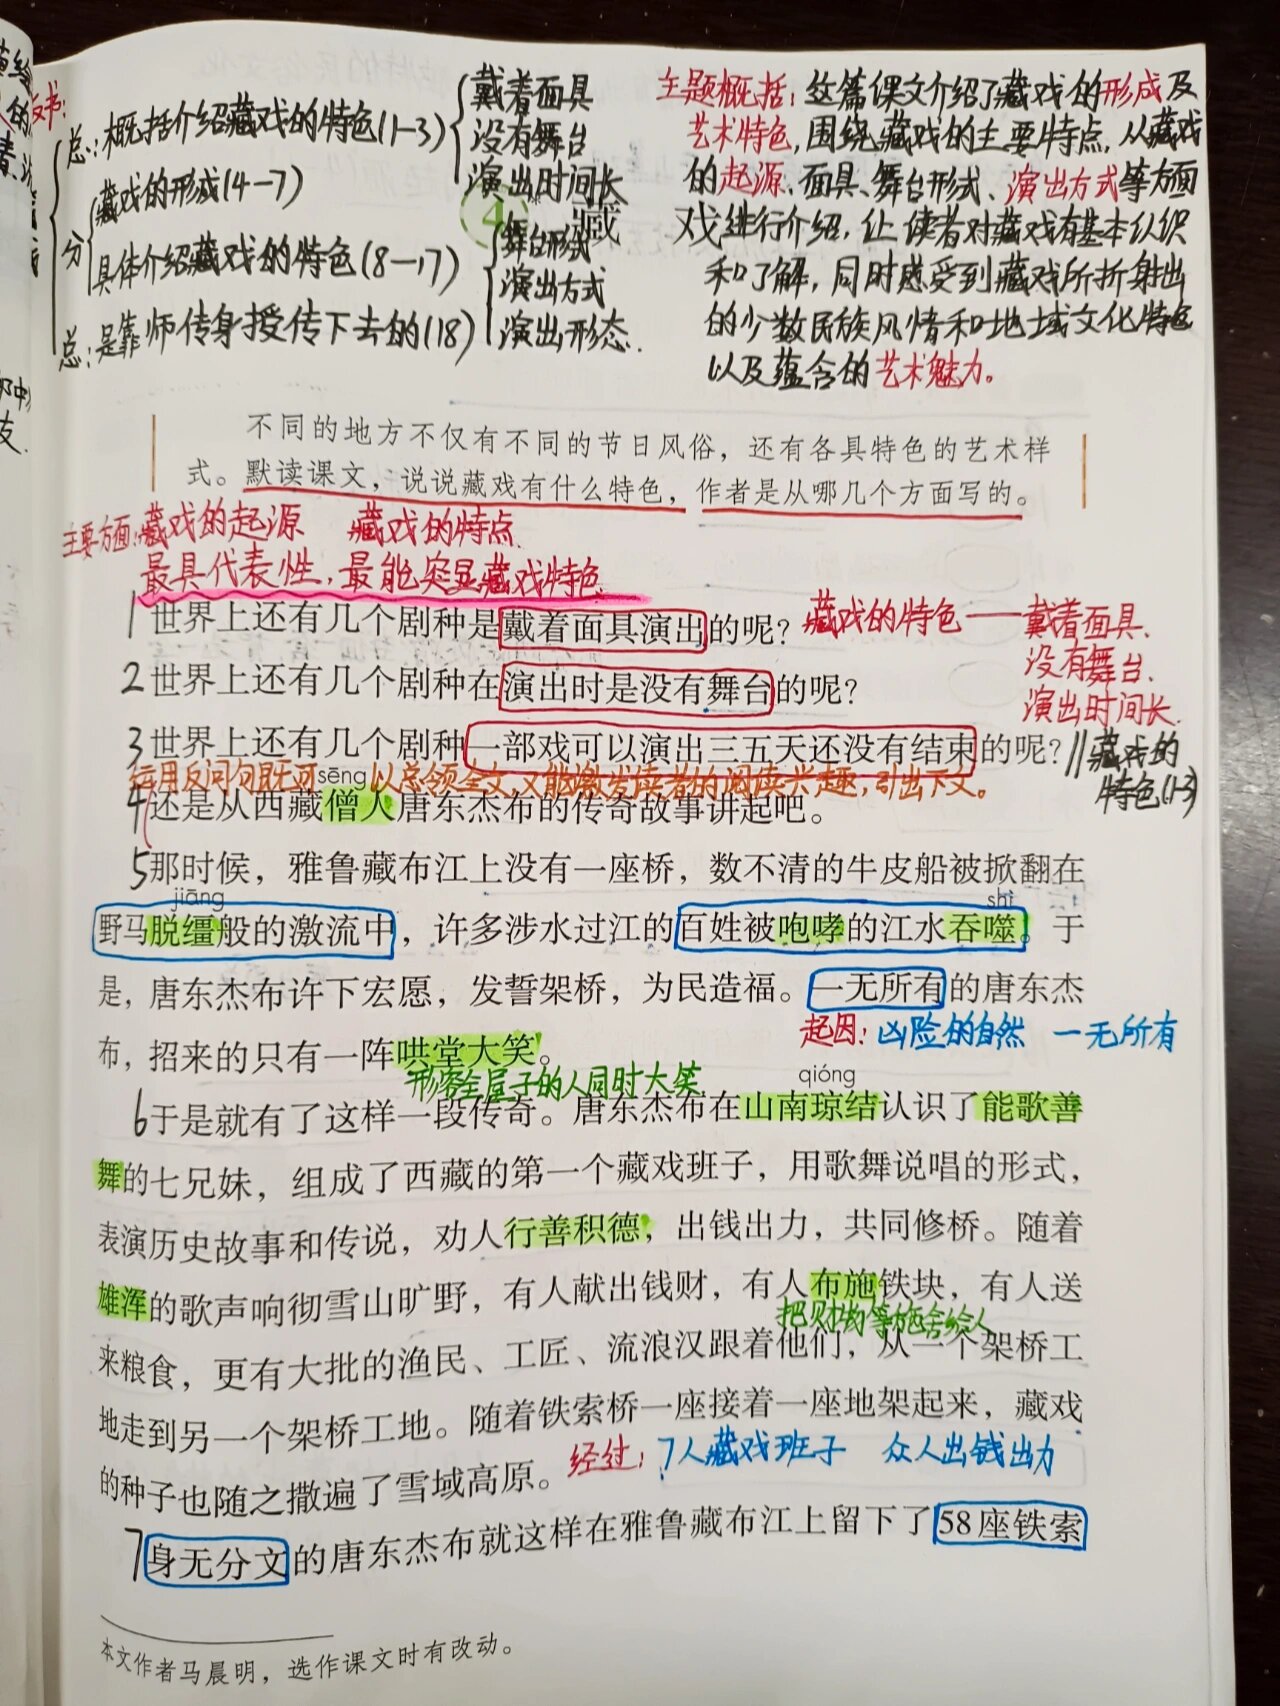 板书:
总:概括介绍藏戏的特色(1—3)
戴着面具
没有舞台
演出时间长
分
藏戏的形成(4—7)
具体介绍藏戏的特色(8—17)
舞台形式
演出方式
演出形态.
总:是靠师传身授传下去的(18)
主题概括:这篇课文介绍了藏戏的形成及
艺术特色,围绕藏戏的主要特点,从藏戏
的起源、面具、舞台形式、演出方式等方面
对藏戏进行介绍,让读者对藏戏有基本认识
和了解,同时感受到藏戏所折射出
的少数民族风情和地域文化特色
以及蕴含的艺术魅力。
4 藏戏
不同的地方不仅有不同的节日风俗，还有各具特色的艺术样
式。默读课文，说说藏戏有什么特色，作者是从哪几个方面写的。
主要方面:藏戏的起源 藏戏的特点
最具代表性,最能突显藏戏特色.
1 世界上还有几个剧种是戴着面具演出的呢？
藏戏的特色——戴着面具.
没有舞台.
演出时间长.
2 世界上还有几个剧种在演出时是没有舞台的呢？
3 世界上还有几个剧种一部戏可以演出三五天还没有结束的呢？
∥藏戏的
特色(1-3)
运用反问句既可以总领全文,又能激发读者的阅读兴趣,引出下文。
sēng
4 还是从西藏僧人唐东杰布的传奇故事讲起吧。
5 那时候，雅鲁藏布江上没有一座桥，数不清的牛皮船被掀翻在
jiāng shì
野马脱缰般的激流中，许多涉水过江的百姓被咆哮的江水吞噬。于
是，唐东杰布许下宏愿，发誓架桥，为民造福。一无所有的唐东杰
起因:凶险的自然 一无所有
布，招来的只有一阵哄堂大笑。
形容全屋子的人同时大笑.
qióng
6 于是就有了这样一段传奇。唐东杰布在山南琼结认识了能歌善
舞的七兄妹，组成了西藏的第一个藏戏班子，用歌舞说唱的形式，
表演历史故事和传说，劝人行善积德，出钱出力，共同修桥。随着
雄浑的歌声响彻雪山旷野，有人献出钱财，有人布施铁块，有人送
把财物等施舍给人
来粮食，更有大批的渔民、工匠、流浪汉跟着他们，从一个架桥工
地走到另一个架桥工地。随着铁索桥一座接着一座地架起来，藏戏
的种子也随之撒遍了雪域高原。
经过:7人藏戏班子 众人出钱出力
7 身无分文的唐东杰布就这样在雅鲁藏布江上留下了58座铁索
本文作者马晨明，选作课文时有改动。